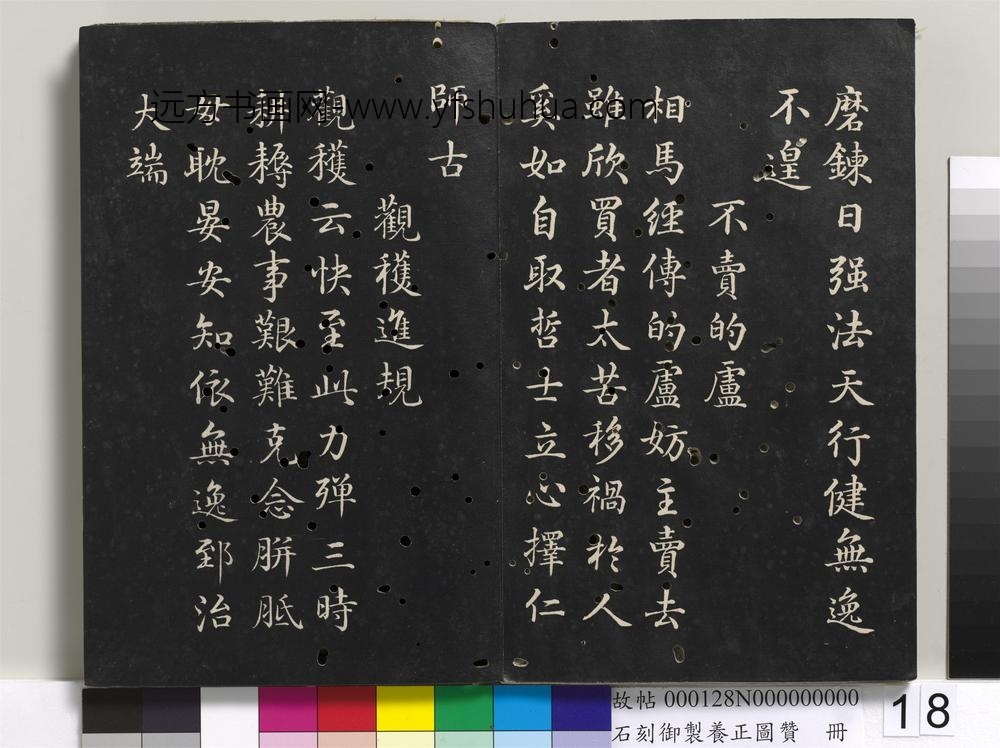 磨鍊日强法天行健無逸
不遑
不賣的盧
相馬經傳的盧妨主賣去
雖欣買者太苦移禍於人
奚如自取哲士立心擇仁
師古
觀穫進規
觀穫云快至此力殫三時
耕耨農事艱難克念胼胝
毋耽晏安知依無逸郅治
大端
远方书画网-www.yfshuhua.com
故帖 000128N000000000
石刻御製養正圖贊 冊
18